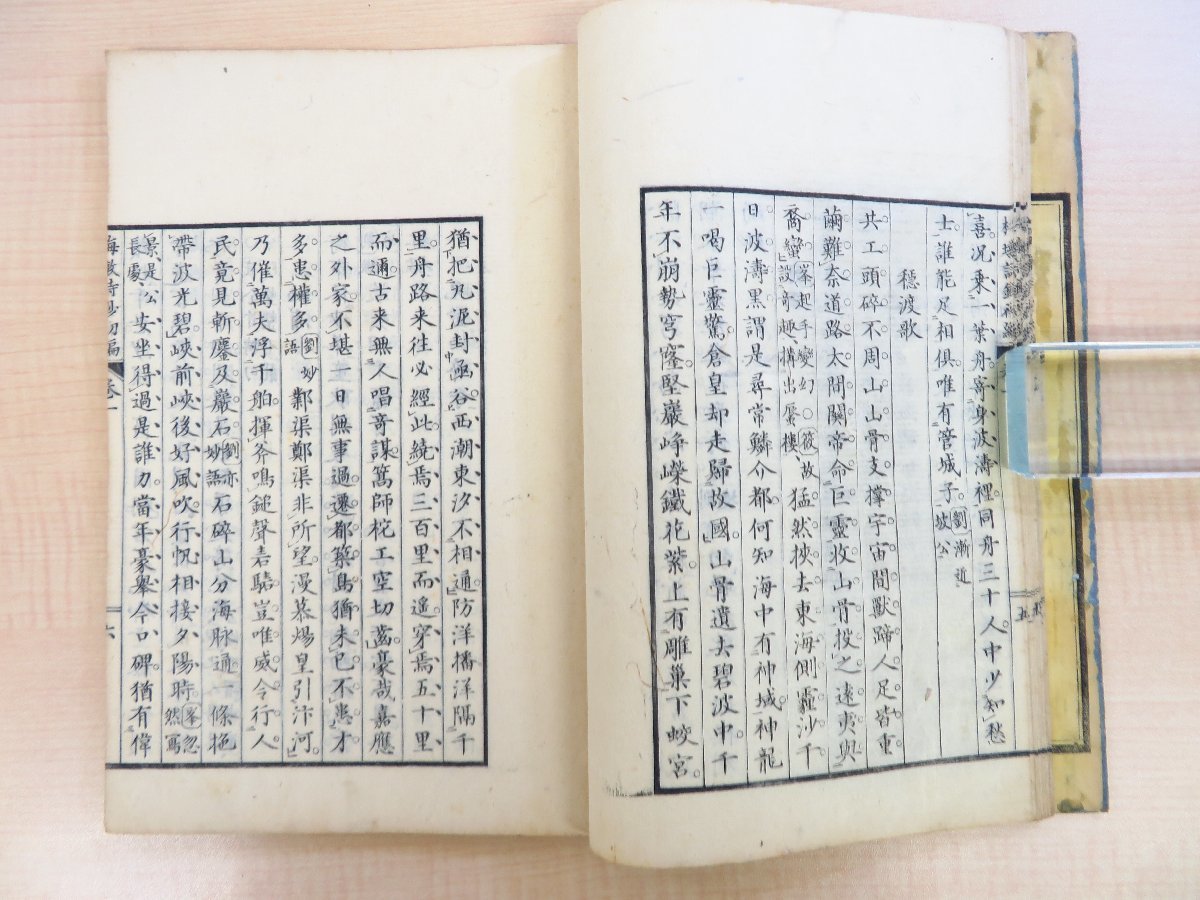 喜况乗一葉舟寄身波濤裡同舟三十人中少知愁
士誰能足相倶唯有管城子劉漸近坡公
穏渡歌
共工頭碎不周山山骨支撑宇宙間獸蹄人足皆重
繭難奈道路太間關帝命巨靈收山骨投之遠夷與
喬蠻峯起手變幻○筱故設奇趣構出蜃樓猛然挾去東海側靈沙千
日波濤黒謂是尋常鱗介都何知海中有神城神龍
一喝巨靈驚倉皇却走歸故國山骨遺去碧波中千
年不崩勢穹窿堅巖崢嶸鐵花紫上有雕巢下蛟宮
五
猶把丸泥封函谷西潮東汐不相通防洋播洋隔千
里舟路来往必經此繞焉三百里而遙穿焉五十里
而邇古来無人唱奇謀篙師柁工空切蒿豪哉嘉應
之外家不堪一日無事過遷都築島猶未已不患才
多患權多劉妙語鄴渠鄭渠非所望漫慕煬皇引汴河
乃催萬夫浮千舶揮斧鳴鎚聲若驍豈唯威令行人
民竟見斬鏖及巖石劉亦妙語石碎山分海脉通一條拖
帶波光碧峽前峽後好風吹行帆相接夕陽時峯忽然寫
景是公長處安坐得過是誰力當年豪舉今口碑猶有偉
卷一
六